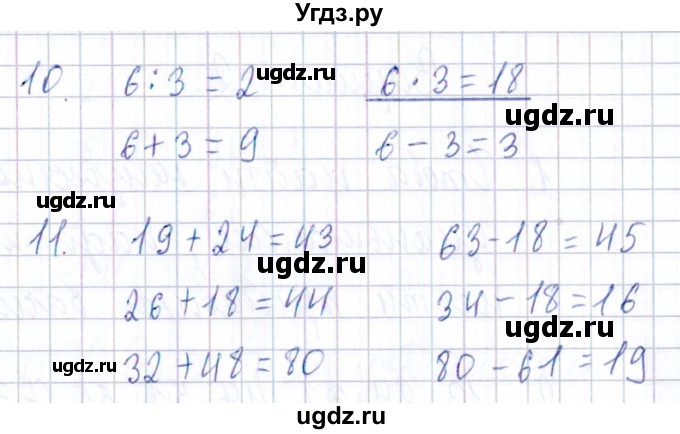 Угдз.ру
10. 6 : 3 = 2 6 · 3 = 18
ugdz.ru ugdz.ru
6 + 3 = 9 6 - 3 = 3
ugdz.ru
11. 19 + 24 = 43 63 - 18 = 45
ugdz.ru
26 + 18 = 44 34 - 18 = 16
ugdz.ru
ugdz.ru 32 + 48 = 80 80 - 61 = 19
ugdz.ru